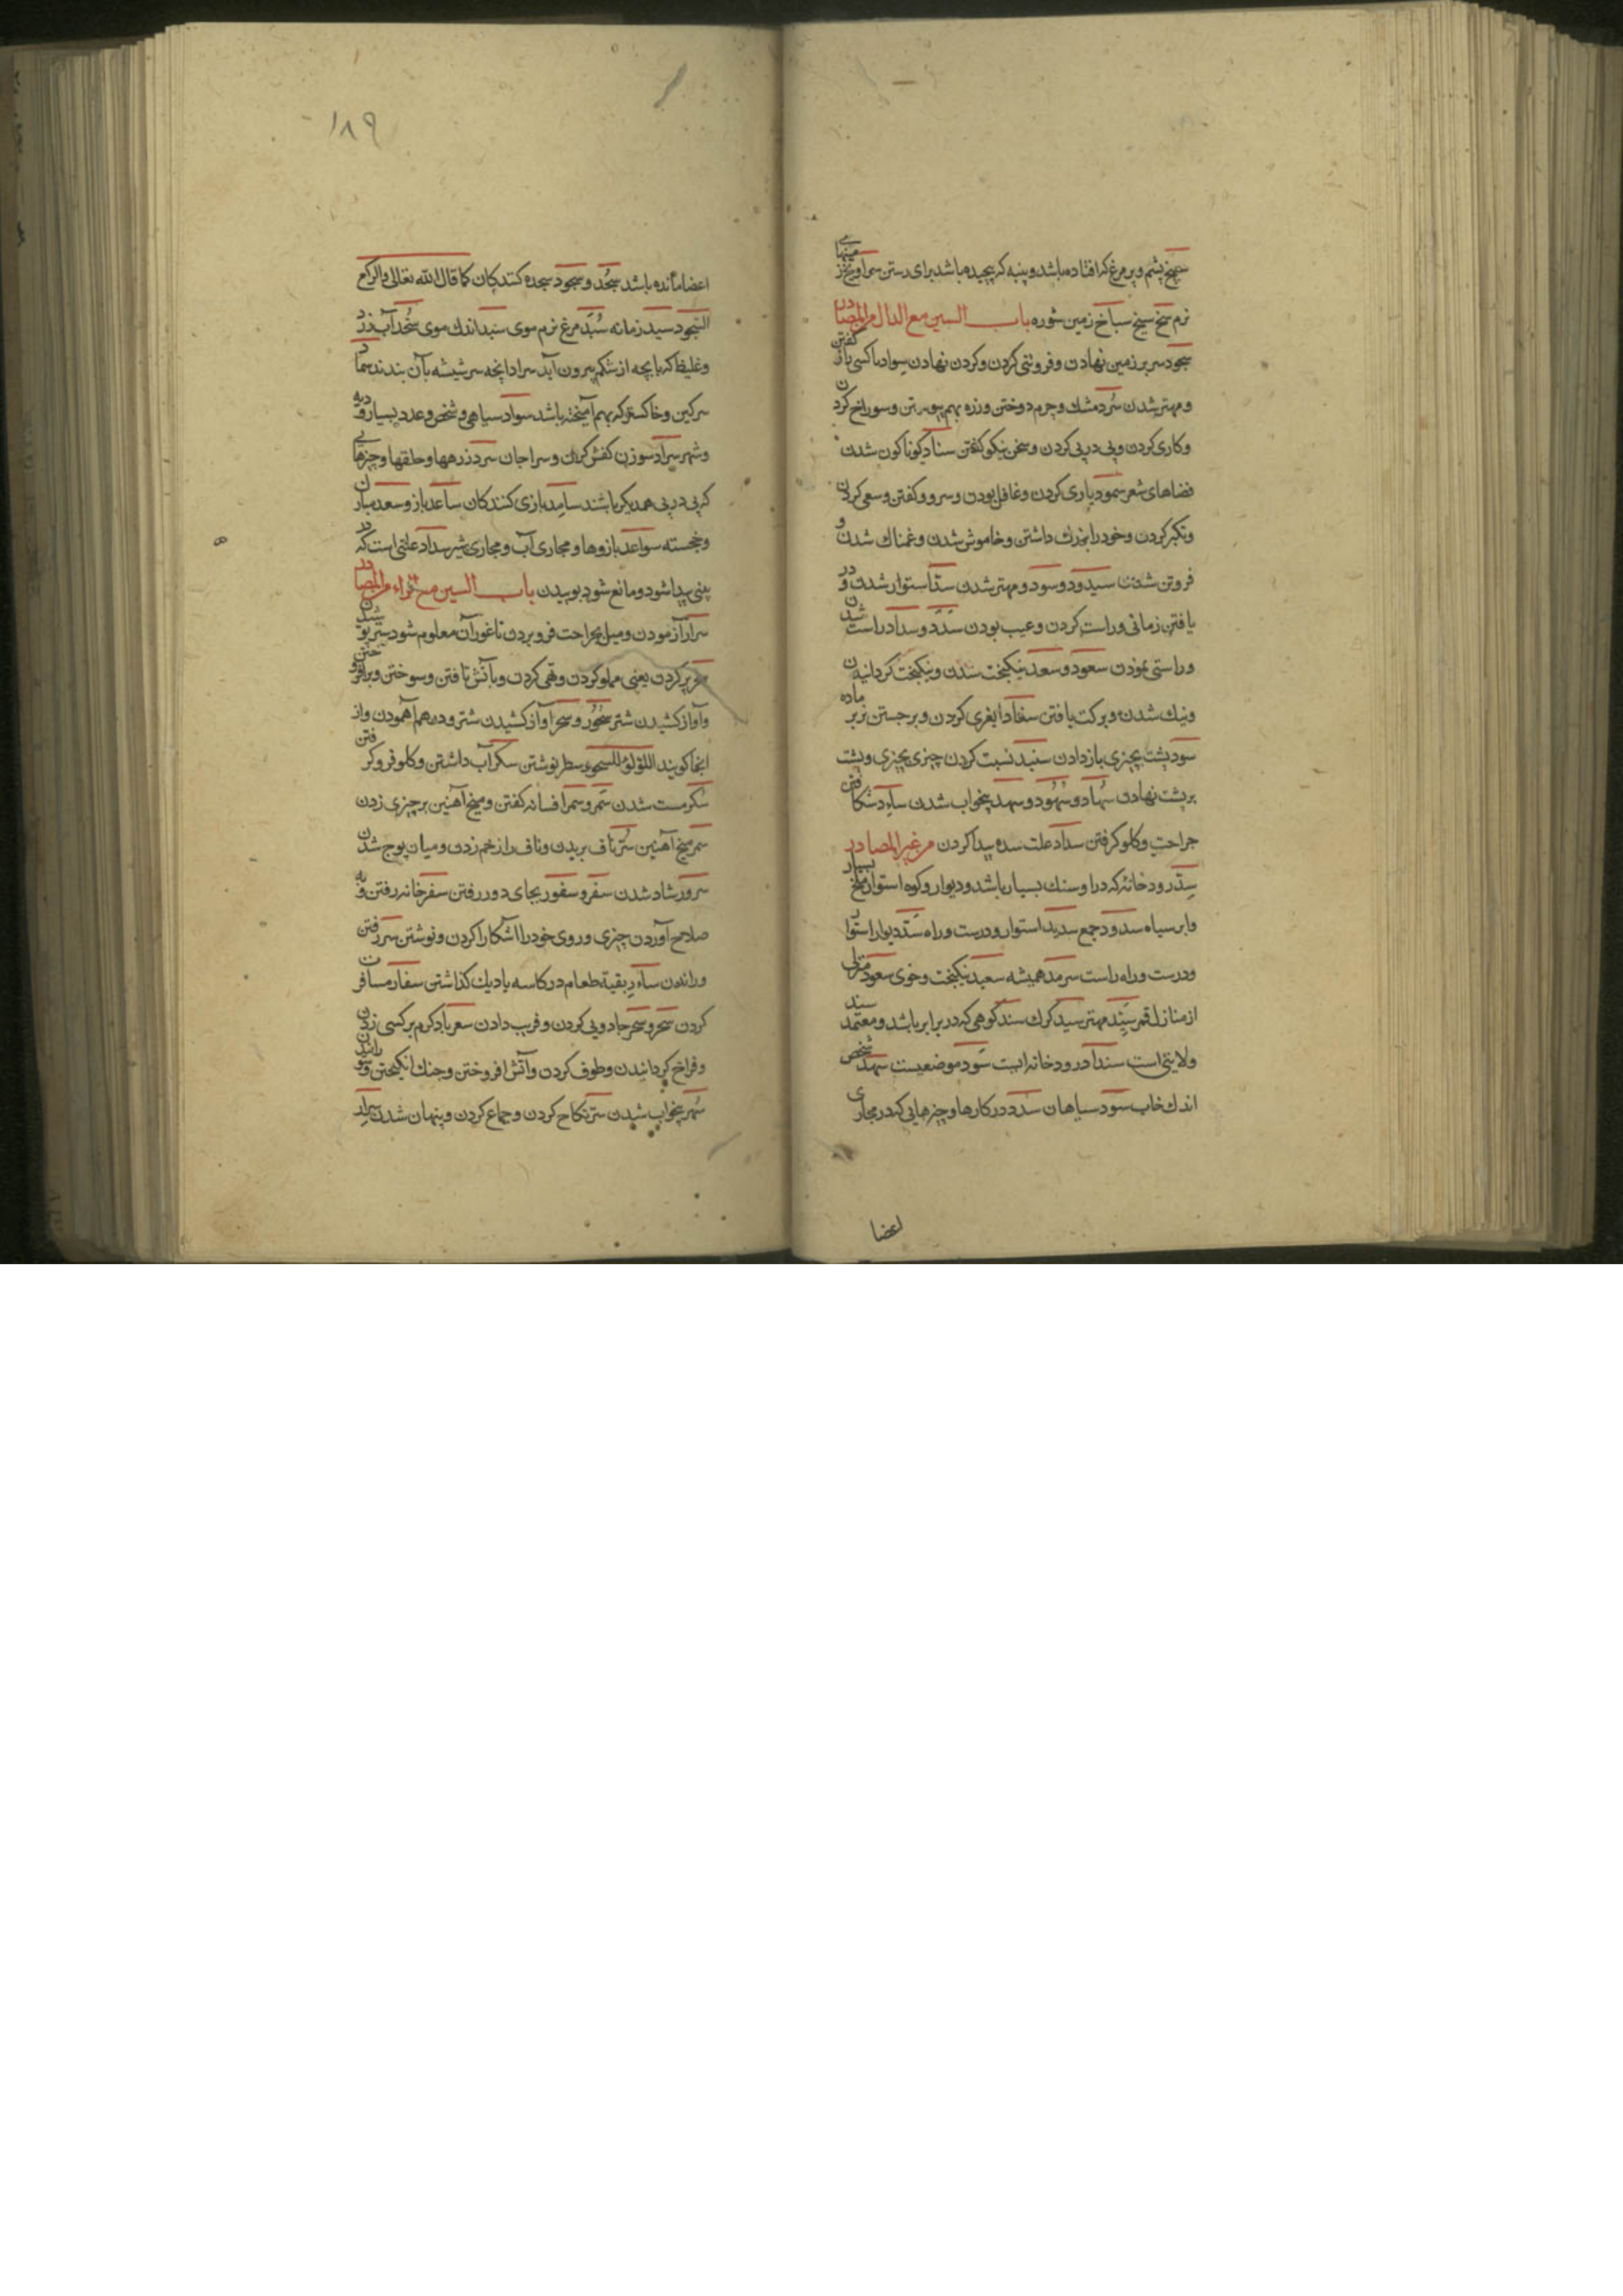 سبیخ پشم و پر مرغ که افتاده باشد و پنبه که پیچیده باشد برای رستن سماویخ زمینهای
نرم سخ سیخ سباخ زمین شوره باب السین مع الدال من المصادر
سجود سر بر زمین نهادن و فروتنی کردن و کردن نهادن سواد با کسی راز کفتن
و مهتر شدن سرد مشک و چرم دوختن و زره بهم پیوستن و سوراخ کردن
و کاری کردن و پی در پی کردن و سخن نیکو کفتن سناد کوناکون شدن
فضاهای شعر سمود بازی کردن و غافل بودن و سرود کفتن و سعی کردن
و تکبر کردن و خود را بزرک داشتن و خاموش شدن و غمناک شدن و
فروتن شدن سیدود و سود و مهتر شدن سدا استوار شدن و در
یافتن زمانی و راست کردن و عیب بودن سدد و سداد راست شدن
و راستی نمودن سعود و سعد نیکبخت شدن و نیکبخت کردانیدن
و نیک شدن و برکت یافتن سفاد ابغری کردن و برجستن نر بر ماده
سود پشت بچیزی باز دادن سنید نسبت کردن چیزی بچیزی و پشت
بر پشت نهادن سهاد و سهود و سهد بیخواب شدن ساد شکافتن
جراحت و کلو کرفتن سداد علت سده پیدا کردن من غیر المصادر
سد رودخانه که در او سنک بسیار باشد و دیوار و کوه استوار ملخ بسیار
و ابر سیاه سدود جمع سدید استوار و درست و راه سدد دیوار استوار
و درست و راه راست سرمد همیشه سعید نیکبخت و خوی سعود منزلی
از منازل قمر سید مهتر سید کرک سند کوهی که در برابر باشد و معتمد سند
ولایتی است سنداد رودخانه ایست سود موضعیست سهد شخص
اندک خاب سود سیاهان سدد در کارها و چیزهایی که در مجاری
اعضا
۱۸۹
اعضا مانده باشد سجد و سجود سجده کنندکان کما قال الله تعالی والرکع
السجود سبد زمانه سبد مرغ نرم موی سبد اندک موی سخد آب زرد
و غلیظ که با بچه از شکم بیرون آید سداد انچه سر شیشه بآن بندند سماد
سرکین و خاکستر که بهم آمیخته باشد سواد سیاهی و شخص و عدد بسیار و دیه
و شهر سراد سوزن کفش کران و سراجان سرد زرهها و حلقها و چیزهایی
که پی در پی همدیکر باشند سامد بازی کنندکان ساعد بازو سعد مبارک
و خجسته سواعد بازوها و مجاری آب و مجاری شیر سداد علتی است که در
بینی پیدا شود و مانع شود بوییدن باب السین مع الراء من المصادر
سرار آزمودن و میل بجراحت فرو بردن تا غور آن معلوم شود ستر پوشیدن
سجر پر کردن یعنی مملو کردن و تهی کردن و باتش تافتن و سوختن و برافروختن
و آواز کشیدن شتر سجور و سجر آواز کشیدن شتر و در هم آمودن و از
اینجا کویند اللؤلؤ المسجور سطر نوشتن سکر آب داشتن و کلو فرو کرفتن
سکر مست شدن سمر و سمر افسانه کفتن و میخ آهنین بر چیزی زدن
سمر میخ آهنین سر ناف بریدن و ناف را زخم زدن و میان پوج شدن
سرور شاد شدن سفر و سفور بجای دور رفتن سفر خانه رفتن و به
صلاح آوردن چیزی و روی خود را آشکارا کردن و نوشتن سیر رفتن
و راندن ساءر بقیة طعام در کاسه یا دیک کذاشتن سفار مسافرت
کردن سحر و سحر جادویی کردن و فریب دادن سعر باد کرم بر کسی زدن
و فراخ کردانیدن و طوف کردن و آتش افروختن و جنک انکیختن و سوزاندن
سهر بیخواب شدن ستر نکاح کردن و جماع کردن و پنهان شدن سرار